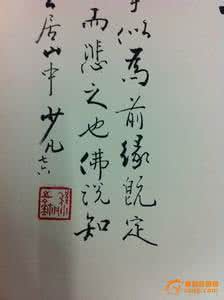 似為前緣既定
而悲之也佛說知
居山中 少凡 七六